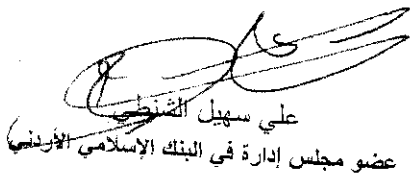 علي سهيل الشنطي
عضو مجلس إدارة في البنك الإسلامي الأردني